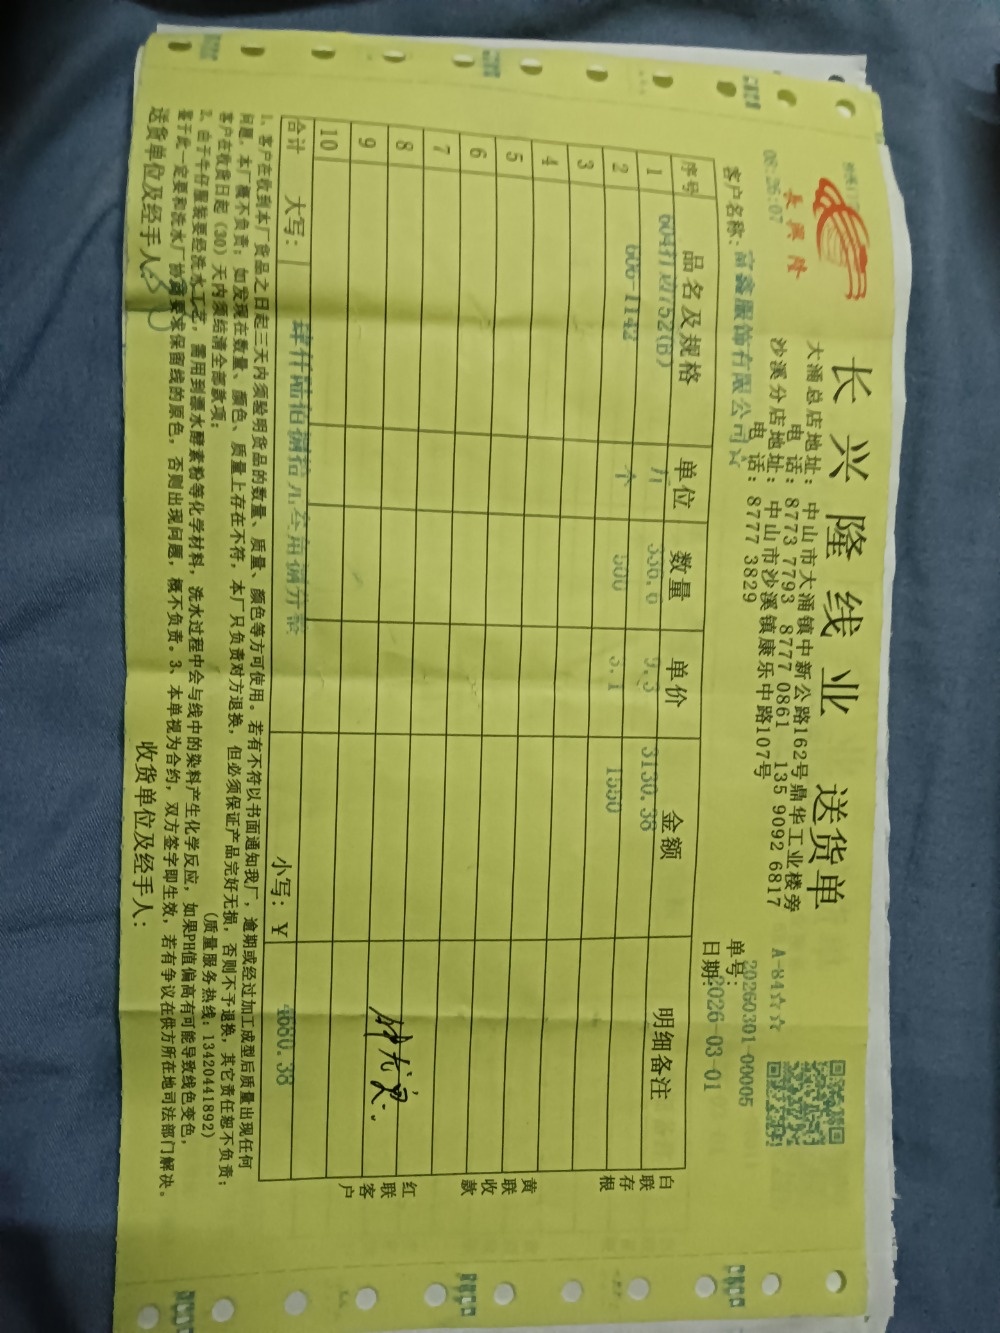 長興隆
长兴隆线业 送货单
A-84☆☆
大涌总店地址: 中山市大涌镇中新公路162号鼎华工业楼旁
电 话: 8773 7793 8777 0861 135 9092 6817
沙溪分店地址: 中山市沙溪镇康乐中路107号
电 话: 8777 3829
08:26:07
单号: 20260301-00005
客户名称: 富鑫服饰有限公司☆
日期: 2026-03-01
序号 品名及规格 单位 数量 单价 金额 明细备注
1 604打边752(B) 斤 336.6 9.3 3130.38
2 606-1142 个 500 3.1 1550
3
4
5
6
7
8
9
10
合计 大写: 肆仟陆佰捌拾元叁角捌分整 小写: ¥ 4680.38
白联存根
黄联收款
红联客户
1、客户在收到本厂货品之日起三天内须验明货品的数量、质量、颜色等方可使用。若有不符以书面通知我厂,逾期或经过加工成型后质量出现任何
问题,本厂概不负责;如发现在数量、颜色、质量上存在不符,本厂只负责对方退换,但必须保证产品完好无损,否则不予退换,其它责任恕不负责;
客户在收货日起(30)天内须结清全部款项;
(质量服务热线:13420441892)
2、由于牛仔服装要经洗水工艺,需用到漂水酵素粉等化学材料,洗水过程中会与线中的染料产生化学反应,如果PH值偏高有可能导致线色变色,
鉴于此一定要和洗水厂协调要求保留线的原色,否则出现问题,概不负责。3、本单视为合约,双方签字即生效,若有争议在供方所在地司法部门解决。
送货单位及经手人: 收货单位及经手人: